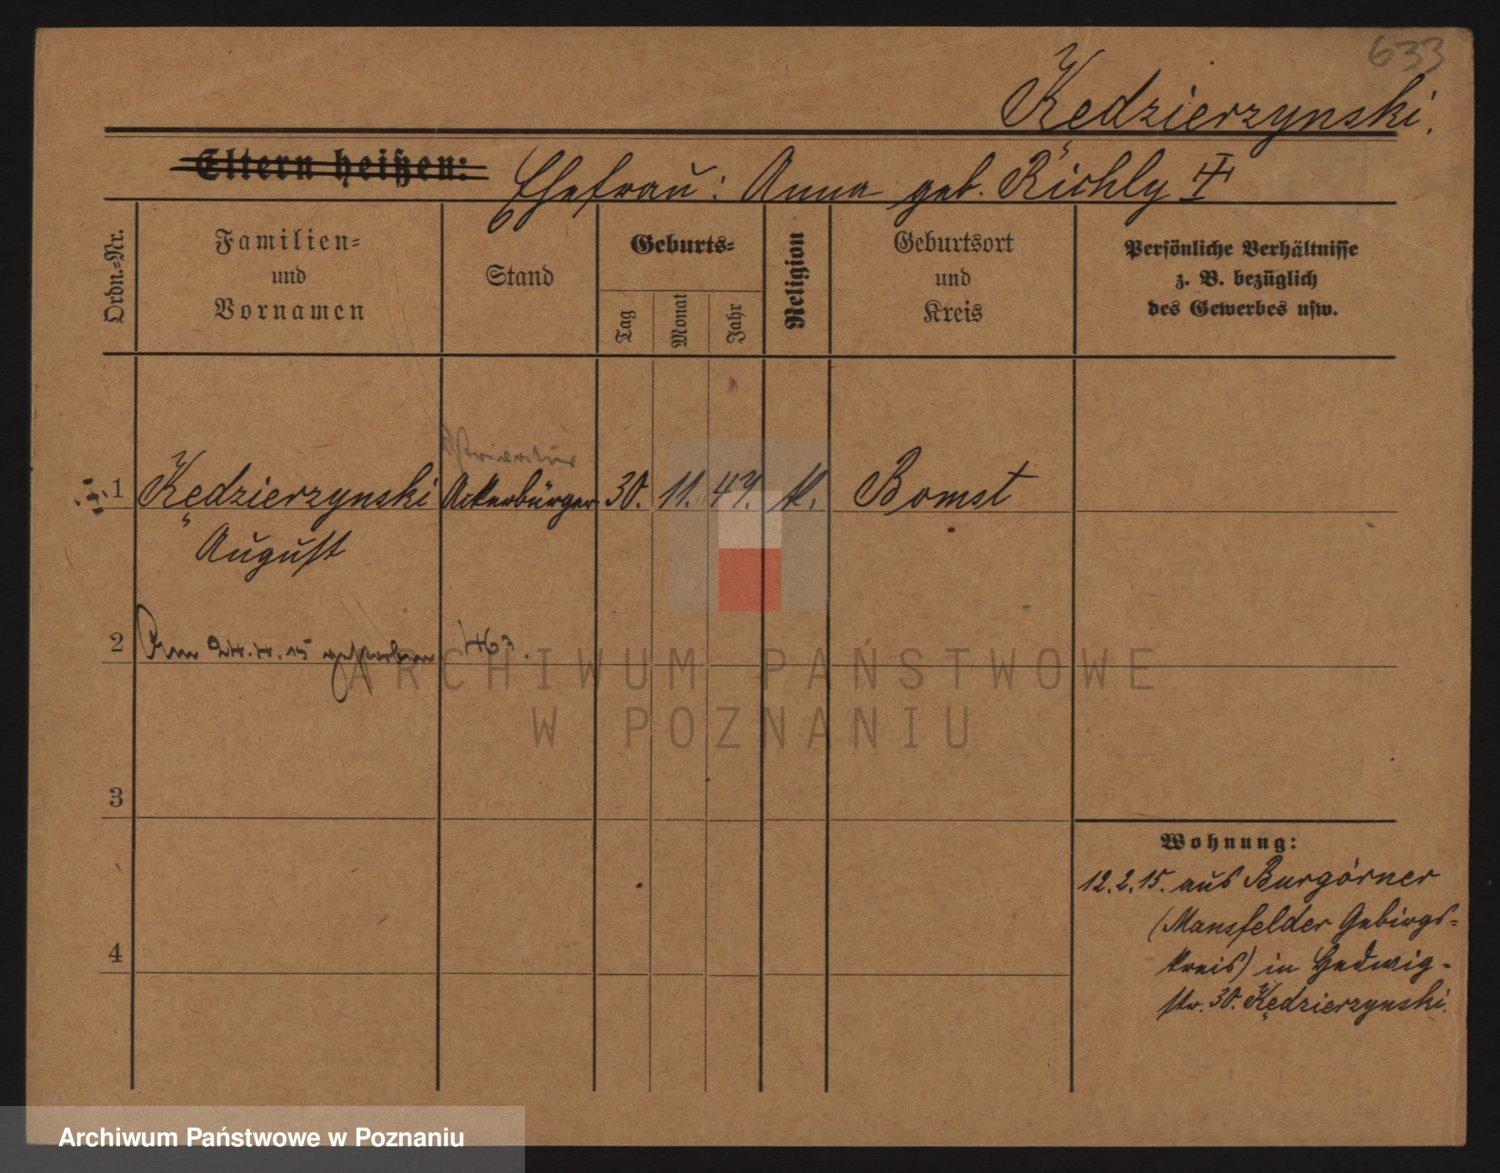 633
Kędzierzynski.
Eltern heißen: Ehefrau: Anna geb. Richly
Ordn.-Nr.
Familien-
und
Vornamen
Stand
Geburts-
Tag
Monat
Jahr
Religion
Geburtsort
und
Kreis
Persönliche Verhältnisse
z. B. bezüglich
des Gewerbes usw.
1 Kędzierzynski Ackerbürger 30. 11. 47. k. Bomst
August
2 Am 24.4.15 gestorben
ARCHIWUM PAŃSTWOWE
W POZNANIU
3
Wohnung:
12.2.15. aus Burgörner
(Mansfelder Gebirgs-
kreis) in Hedwig-
str. 30. Kędzierzynski.
4
Archiwum Państwowe w Poznaniu